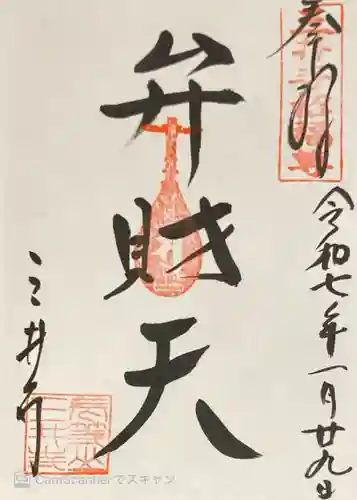 奉拝
令和七年一月廿九日
弁財天
三井寺
CamScannerでスキャン